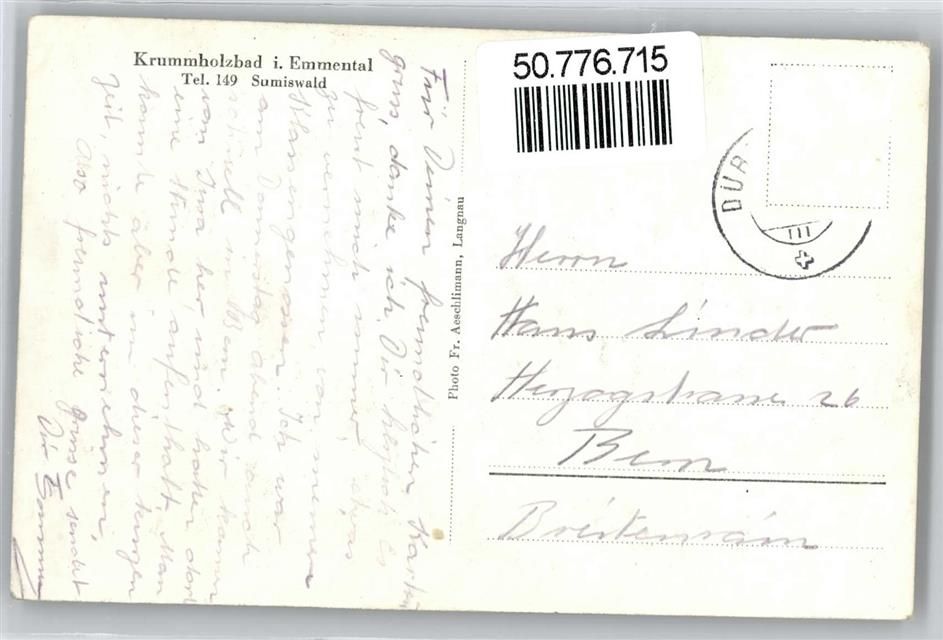 Krummholzbad i. Emmental
Tel. 149 Sumiswald
50.776.715
DÜR
III
Photo Fr. Aeschlimann, Langnau
Herrn
Hans Linder
Herzogstrasse 26
Bern
Breitenrain
Für Deinen freundlichen Karten
gruss, danke ich Dir herzlich. Es
freut mich immer etwas
zu vernehmen von meinen
Klassengenossen. Ich war
am Donnstag abend auch
schnell in Bern. Wir kamen
von Jura her und hatten dort
eine Stunde aufenthalt. Man
konnte aber in dieser kurzen
Zeit, nichts unternehmen,
Also freundliche Grüsse sendet
Dir